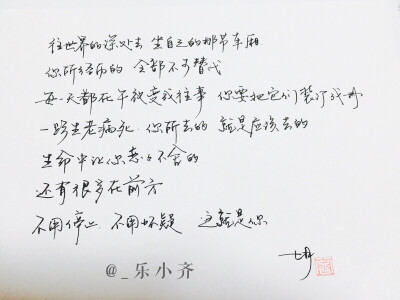 往世界的深处去 坐自己的那节车厢
你所经历的 全部不可替代
每一天都在午夜变成往事 你要把它们装订成册
一路生老病死 你所去的 就是应该去的
生命中让你恋恋不舍的
还有很多在前方
不用停止 不用怀疑 这就是你
@_乐小齐